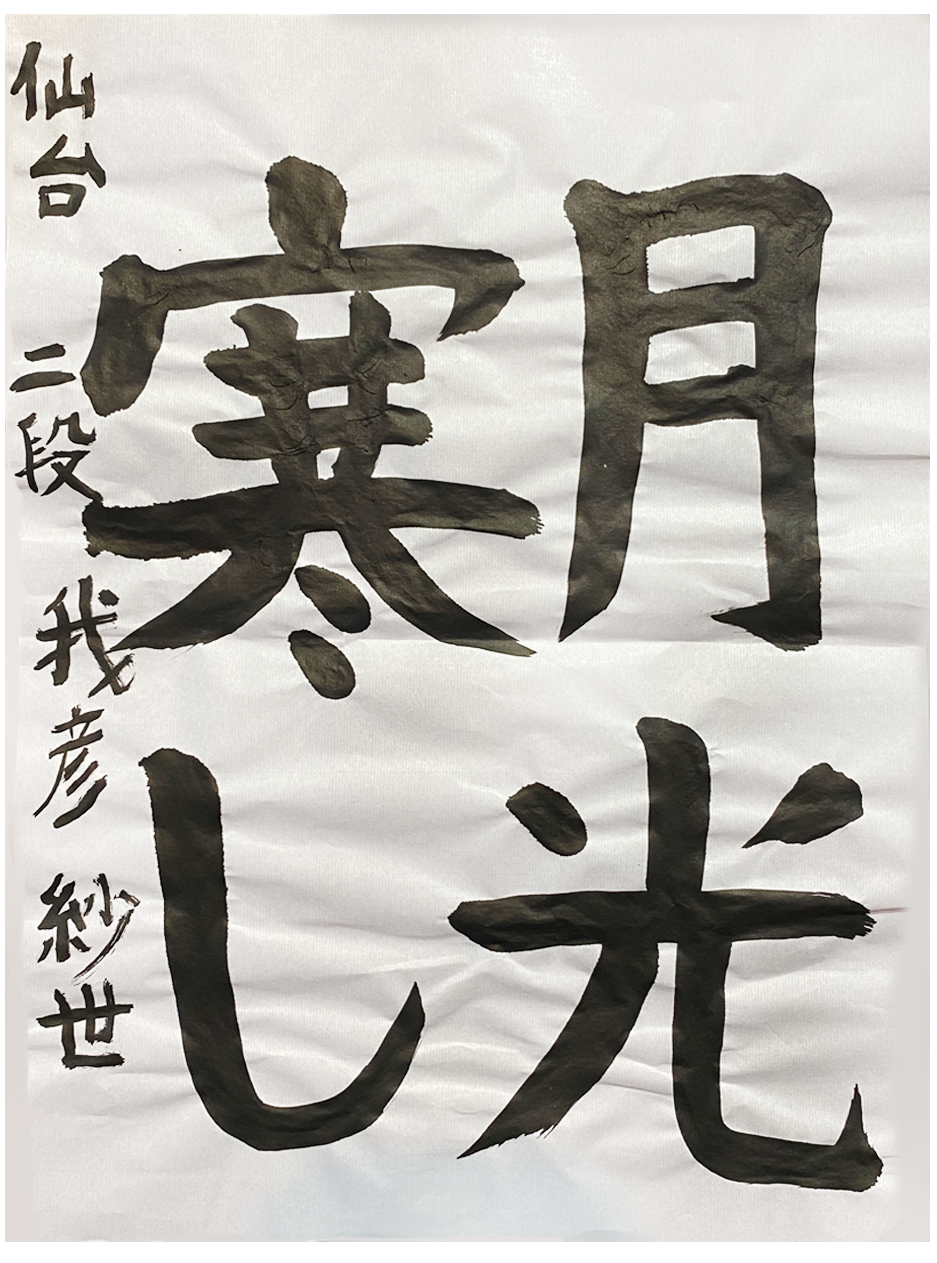 月光
寒し
仙台 二段 我彦 紗世